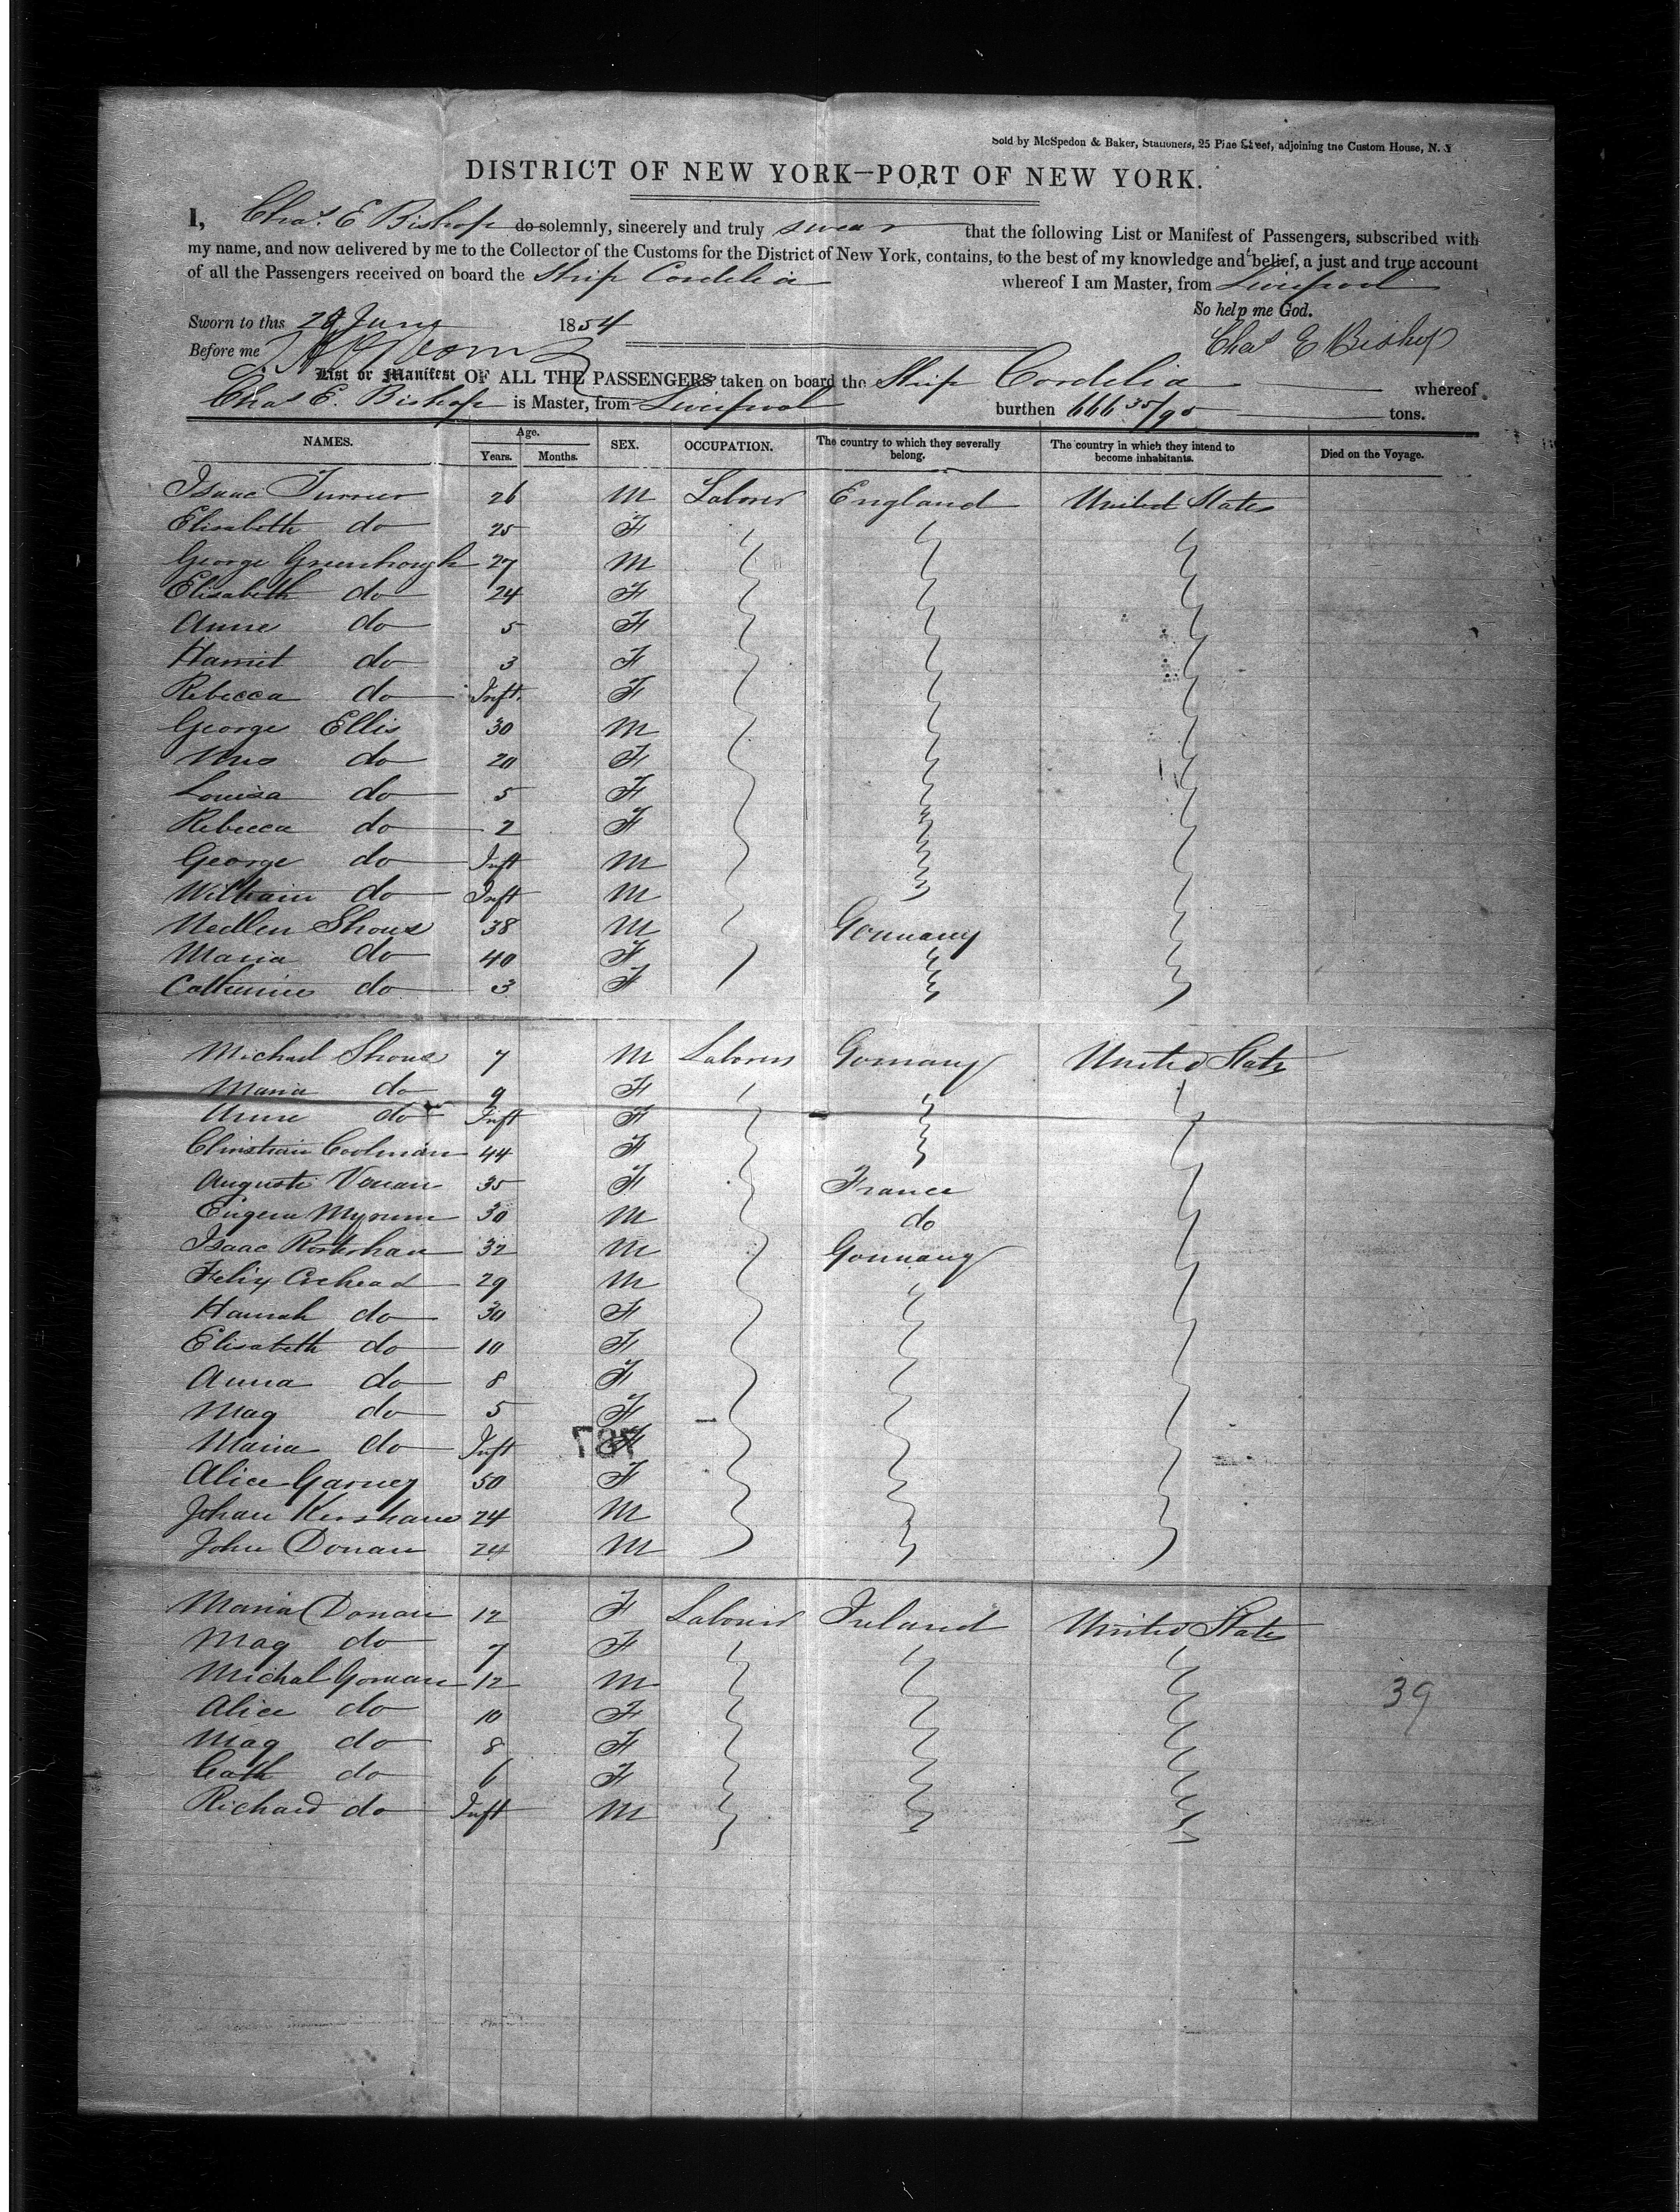 Sold by McSpedon & Baker, Stationers, 25 Pine Street, adjoining the Custom House, N. Y
DISTRICT OF NEW YORK—PORT OF NEW YORK.
I, Chas. E Bishop do solemnly, sincerely and truly swear that the following List or Manifest of Passengers, subscribed with
my name, and now delivered by me to the Collector of the Customs for the District of New York, contains, to the best of my knowledge and belief, a just and true account
of all the Passengers received on board the Ship Cordelia whereof I am Master, from Liverpool
So help me God.
Sworn to this 29 June 1854
Chas E Bishop
Before me
List or Manifest OF ALL THE PASSENGERS taken on board the Ship Cordelia whereof
Chas E. Bishop is Master, from Liverpool burthen 666 35/95 tons.
NAMES. Age. SEX. OCCUPATION. The country to which they severally belong. The country in which they intend to become inhabitants. Died on the Voyage.
Years. Months.
Isaac Turner 26 M Laborer England United States
Elisabeth do 25 F
George Greenhough 27 M
Elisabeth do 24 F
Anne do 5 F
Harriet do 3 F
Rebecca do Inft. F
George Ellis 30 M
Mrs do 20 F
Louisa do 5 F
Rebecca do 2 F
George do Inft M
William do Inft M
Shous 38 M Germany
Maria do 40 F
Catherine do 3 F
Michael Shous 7 M Laborers Germany United States
Maria do 9 F
Anne do Inft F
Christian Coolman 44 F
Auguste 35 F France
Eugene 30 M do
Isaac 32 M Germany
Felix 29 M
Hannah do 30 F
Elisabeth do 10 F
Anna do 8 F
Mag do 5 F
Maria do Inft F
787
Alice Garney 50 F
Johan Kershaw 24 M
John Donan 24 M
Maria Donan 12 F Laborers Ireland United States
Mag do 7 F
Michal Gorman 12 M
39
Alice do 10 F
Mag do 8 F
Cath do 6 F
Richard do Inft M